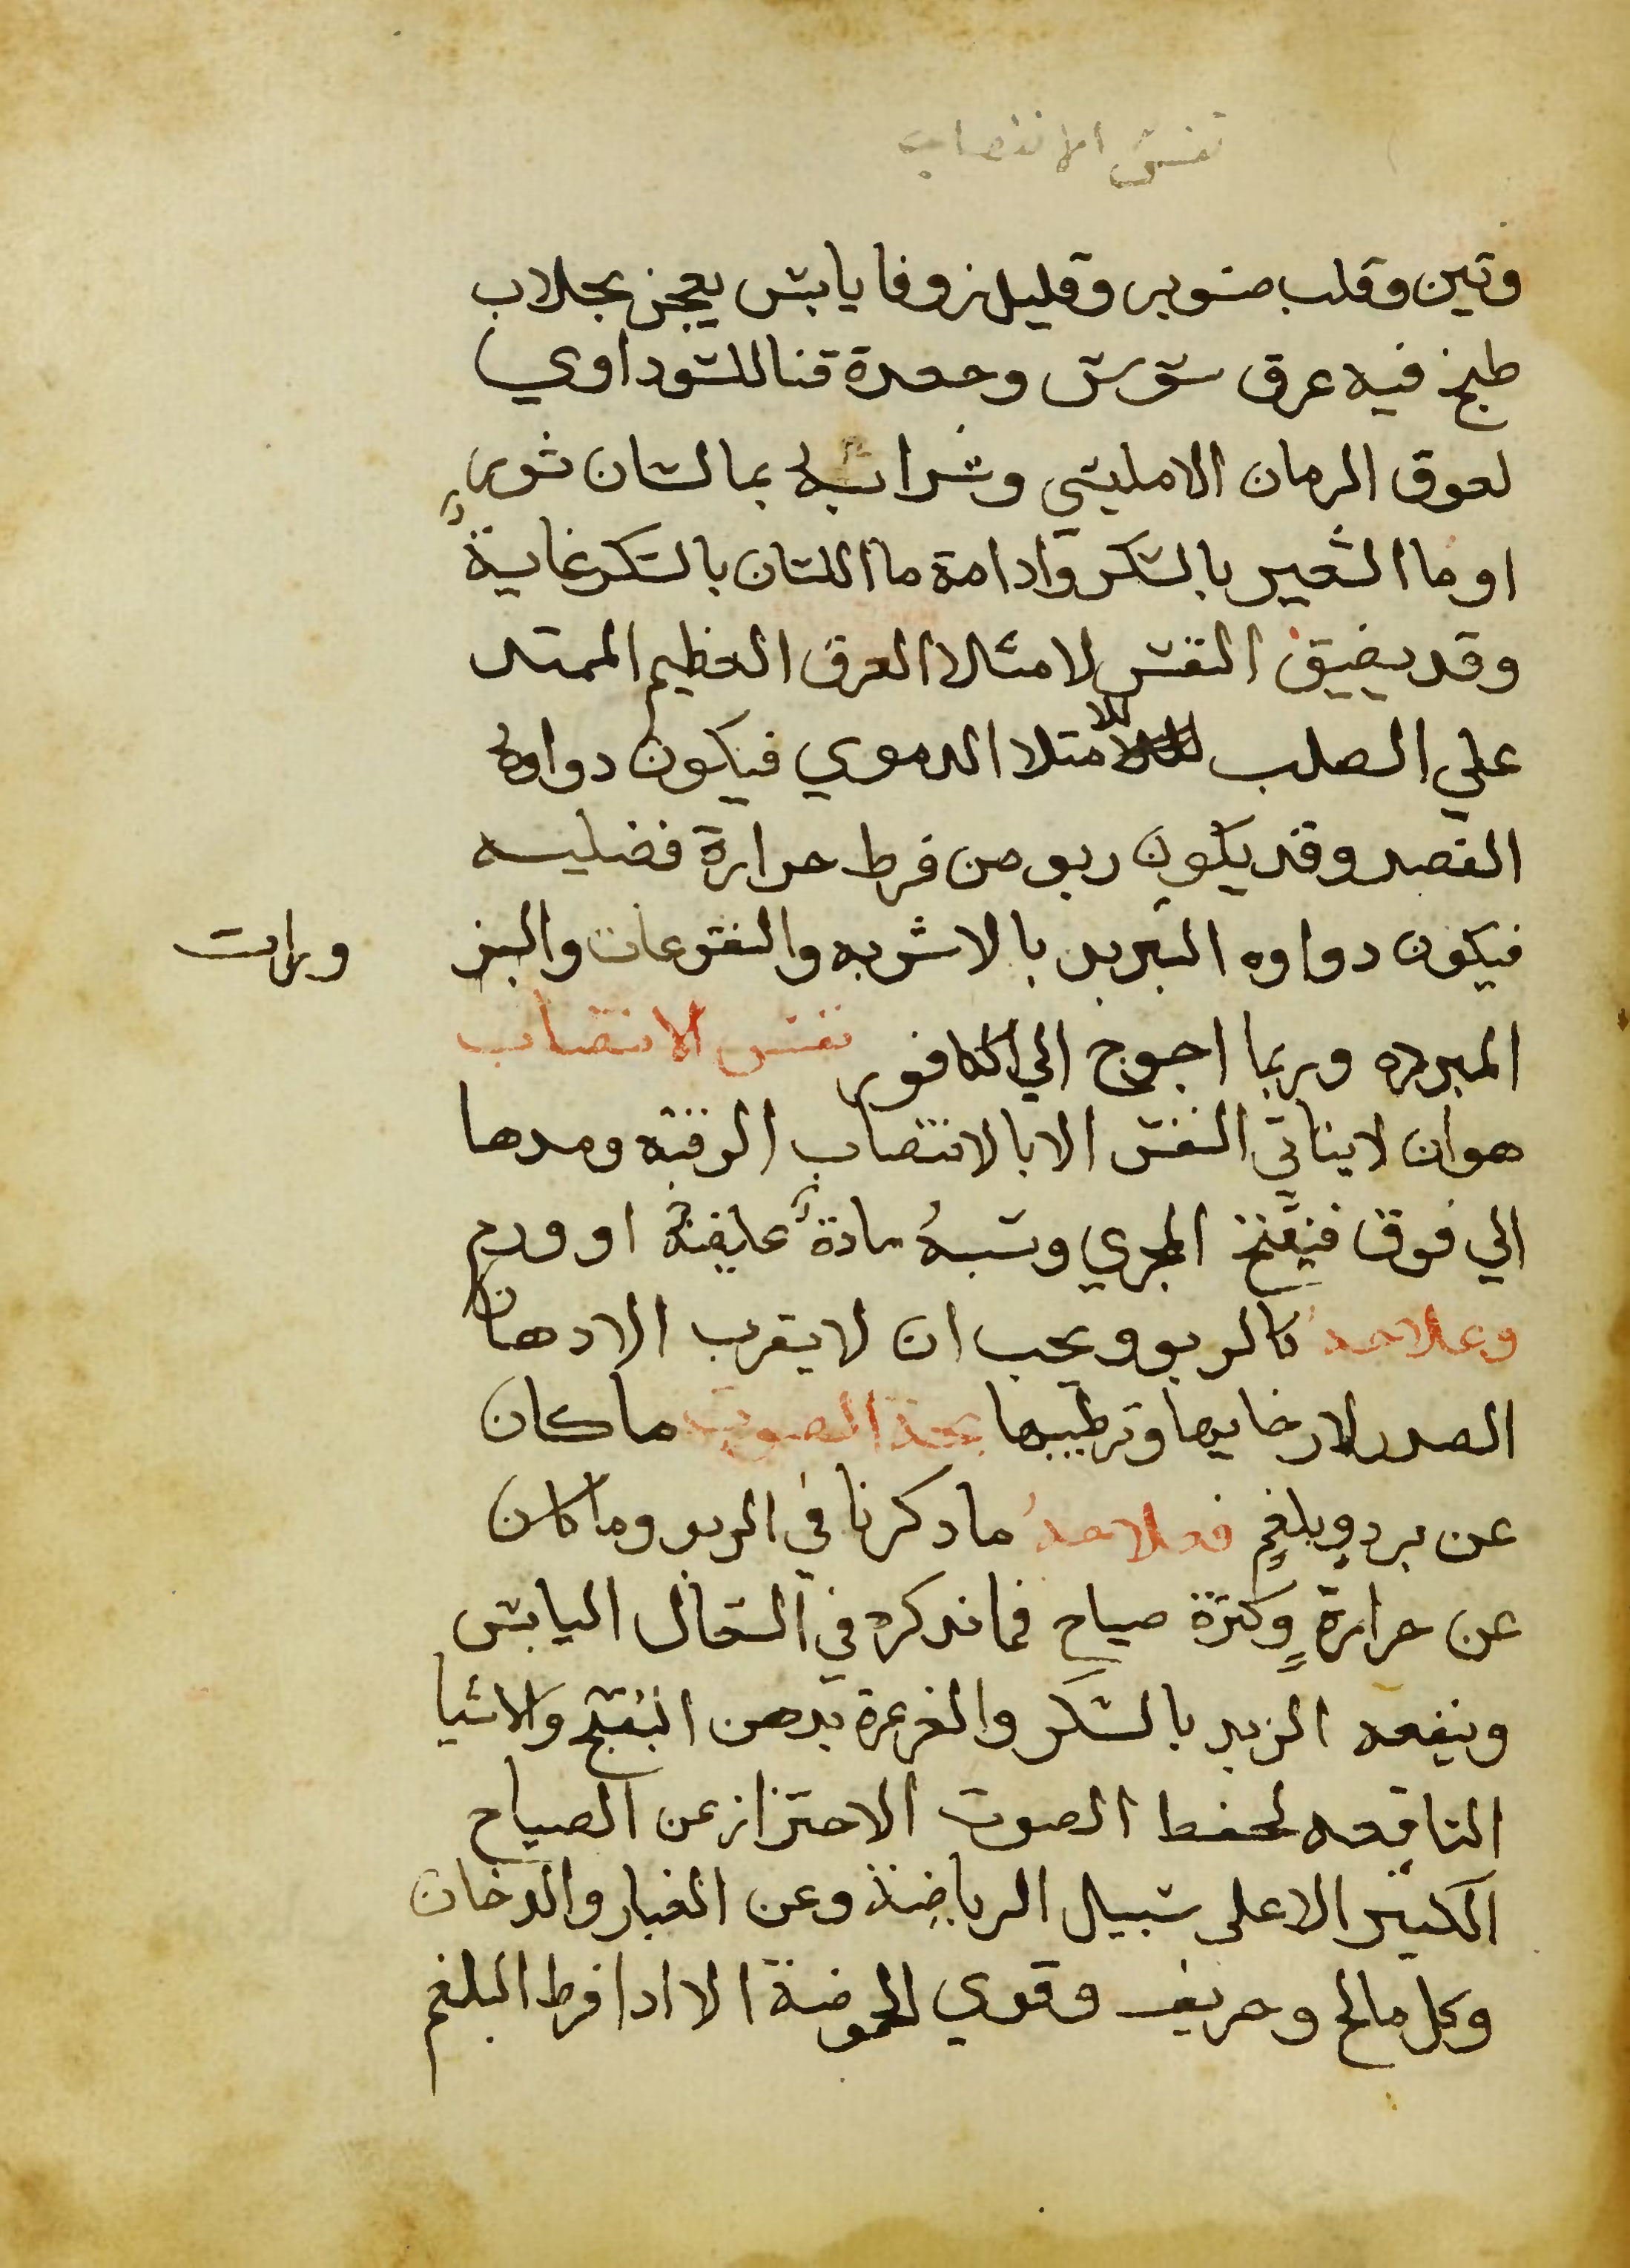 نفس الانتصاب
وتين وقلب صنوبر وقليل زوفا يابس يعجن بجلاب
طبخ فيه عرق سوس وجعدة قنا للسوداوي
لعوق الرمان الامليسي وشرابه بما لسان ثور
او ما الشعير بالسكر وادامة ما اللسان بالسكر غاية
وقد يضيق النفس لامتلا العرق العظيم الممتد
علي الصلب للامتلا الدموي فيكون دواوه
الفصد وقد يكون ربو من فرط حرارة فضليه
فيكون دواوه التبريد بالاشربه والنقوعات والبز ورات
المبرده وربما احوج الي الكافور نفس الانتصاب
هو ان لا يتاتي النفس الا بالانتصاب الرقبه ومدها
الي فوق فينفتح المجري وسببه مادة غليظة او ورم
وعلاجه كالربو ويجب ان لا يقرب الادهان
الصدر لارخايها وترطيبها بحة الصوت ما كان
عن برد وبلغم فعلاجه ما دكرنا في الربو وما كان
عن حرارة وكثرة صياح فما ندكره في السعال اليابس
وينفعه الزبد بالسكر والغرغرة بدهن البنفسج والاشيا
النافعه لحفظ الصوت الاحتراز عن الصياح
الكثير الا علي سبيل الرياضة وعن الغبار والدخان
وكل مالح وحريف وقوي الحموضة الا ادا فرط البلغم